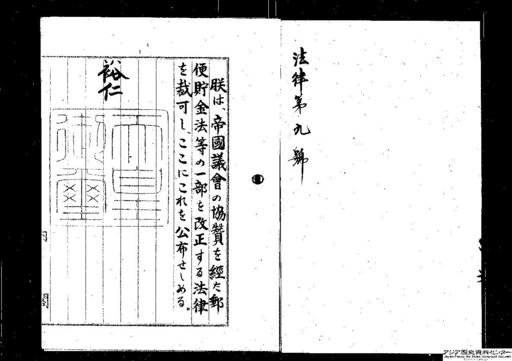 法律第九號
朕は、帝國議會の協贊を經た郵
便貯金法等の一部を改正する法律
を裁可し、ここにこれを公布せしめる。
裕仁
天皇
御璽
内閣
アジア歴史資料センター